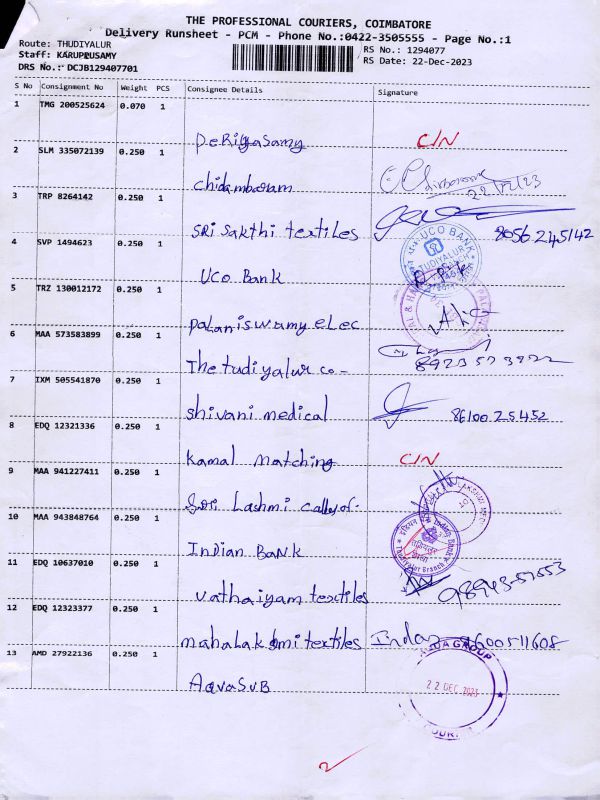 THE PROFESSIONAL COURIERS, COIMBATORE
Delivery Runsheet - PCM - Phone No.:0422-3505555 - Page No.:1
Route: THUDIYALUR
Staff: KARUPPUSAMY
DRS No.: DCJB129407701
RS No.: 1294077
RS Date: 22-Dec-2023
S No Consignment No Weight PCS Consignee Details Signature
1 TMG 200525624 0.070 1
Periyasamy C/N
2 SLM 335072139 0.250 1
Chidambaram 22/12/23
3 TRP 8264142 0.250 1
SRI Sakthi textiles 8056245142
4 SVP 1494623 0.250 1
UCO Bank UCO BANK
5 TRZ 130012172 0.250 1
Palaniswamy elec
6 MAA 573583899 0.250 1
The tudiyalur co-
7 IXM 505541870 0.250 1
Shivani medical 8610025452
8 EDQ 12321336 0.250 1
Kamal matching C/N
9 MAA 941227411 0.250 1
Sri Lashmi
10 MAA 943848764 0.250 1
Indian Bank इंडियन बैंक Indian Bank Thudiyalur Branch
11 EDQ 10637010 0.250 1
Vathaiyam textiles
12 EDQ 12323377 0.250 1
mahalakshmi textiles 9600511608
13 AMD 27922136 0.250 1
AqvaSuB GROUP 22 DEC 2023